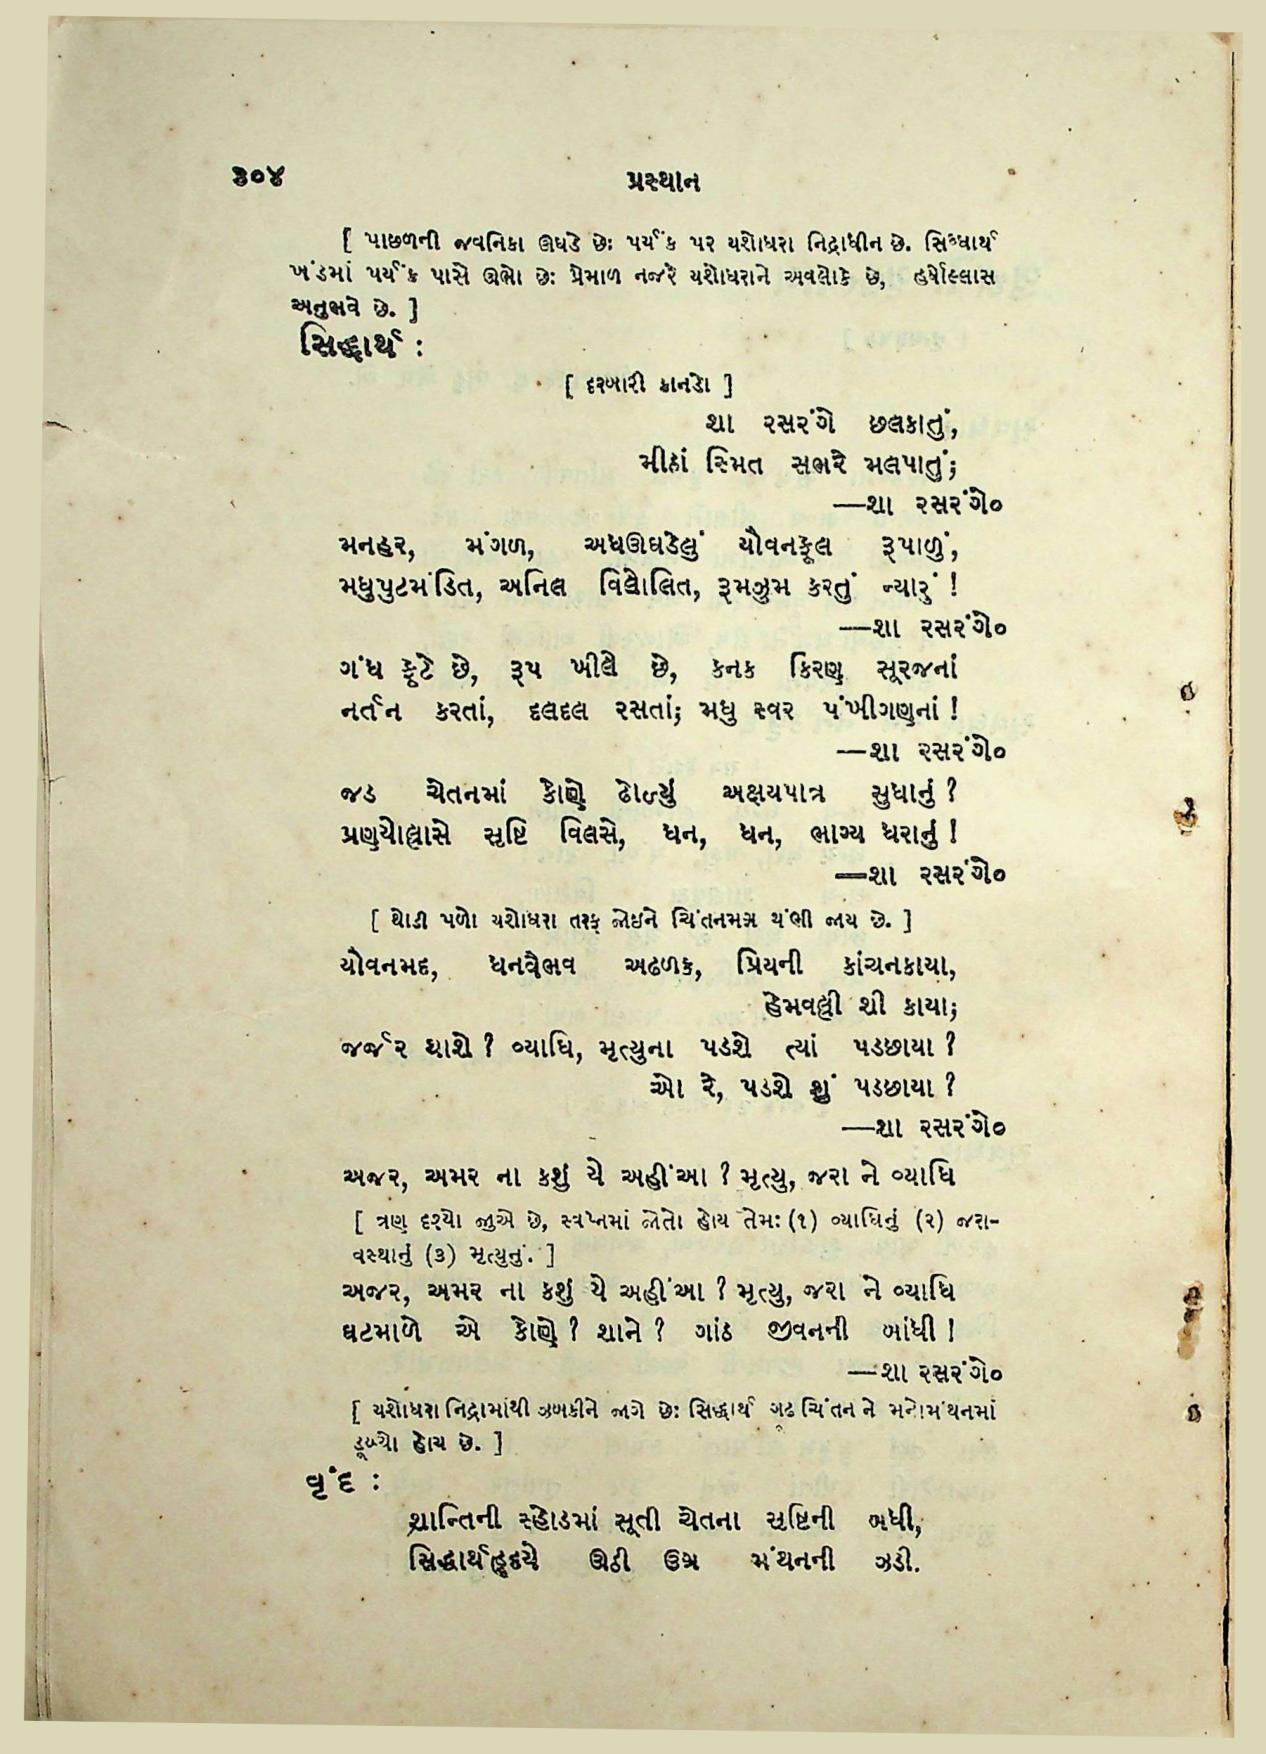 ૩૦૪ પ્રસ્થાન
[ પાછળની જવનિકા ઊઘડે છેઃ પર્યંક પર યશોધરા નિદ્રાધીન છે. સિદ્ધાર્થ
ખંડમાં પર્યંક પાસે ઊભો છેઃ પ્રેમાળ નજરે યશોધરાને અવલોકે છે, હર્ષોલ્લાસ
અનુભવે છે. ]
સિદ્ધાર્થ :
[ દરબારી કાનડો ]
શા રસરંગે છલકાતું,
મીઠાં સ્મિત સભરે મલપાતું;
—શા રસરંગે૦
મનહર, મંગળ, અધઊઘડેલું યૌવનફૂલ રૂપાળું,
મધુપુટમંડિત, અનિલ વિલોલિત, રૂમઝુમ કરતું ન્યારું !
—શા રસરંગે૦
ગંધ ફૂટે છે, રૂપ ખીલે છે, કનક કિરણ સૂરજનાં
નર્તન કરતાં, દલદલ રસતાં; મધુ સ્વર પંખીગણનાં !
—શા રસરંગે૦
જડ ચેતનમાં કોણે ઢોળ્યું અક્ષયપાત્ર સુધાનું ?
પ્રણયોલ્લાસે સૃષ્ટિ વિલસે, ધન, ધન, ભાગ્ય ધરાનું !
—શા રસરંગે૦
[ થોડી પળો યશોધરા તરફ જોઇને ચિંતનમગ્ન થંભી જાય છે. ]
યૌવનમદ, ધનવૈભવ અઢળક, પ્રિયની કાંચનકાયા,
હેમવલ્લી શી કાયા;
જર્જર થાશે ? વ્યાધિ, મૃત્યુના પડશે ત્યાં પડછાયા ?
ઓ રે, પડશે શું પડછાયા ?
—શા રસરંગે૦
અજર, અમર ના કશું યે અહીંઆ ? મૃત્યુ, જરા ને વ્યાધિ
[ ત્રણ દૃશ્યો જુએ છે, સ્વપ્નમાં જોતો હોય તેમઃ (૧) વ્યાધિનું (૨) જરા-
વસ્થાનું (૩) મૃત્યુનું. ]
અજર, અમર ના કશું યે અહીંઆ ? મૃત્યુ, જરા ને વ્યાધિ
ઘટમાળે એ કોણે ? શાને ? ગાંઠ જીવનની બાંધી !
—શા રસરંગે૦
[ યશોધરા નિદ્રામાંથી ઝબકીને જાગે છેઃ સિદ્ધાર્થ ગૂઢ ચિંતન ને મનોમંથનમાં
ડૂબ્યો હોય છે. ]
વૃંદ :
શાન્તિની સ્હોડમાં સૂતી ચેતના સૃષ્ટિની બધી,
સિદ્ધાર્થહૃદયે ઊઠી ઉગ્ર મંથનની ઝડી.